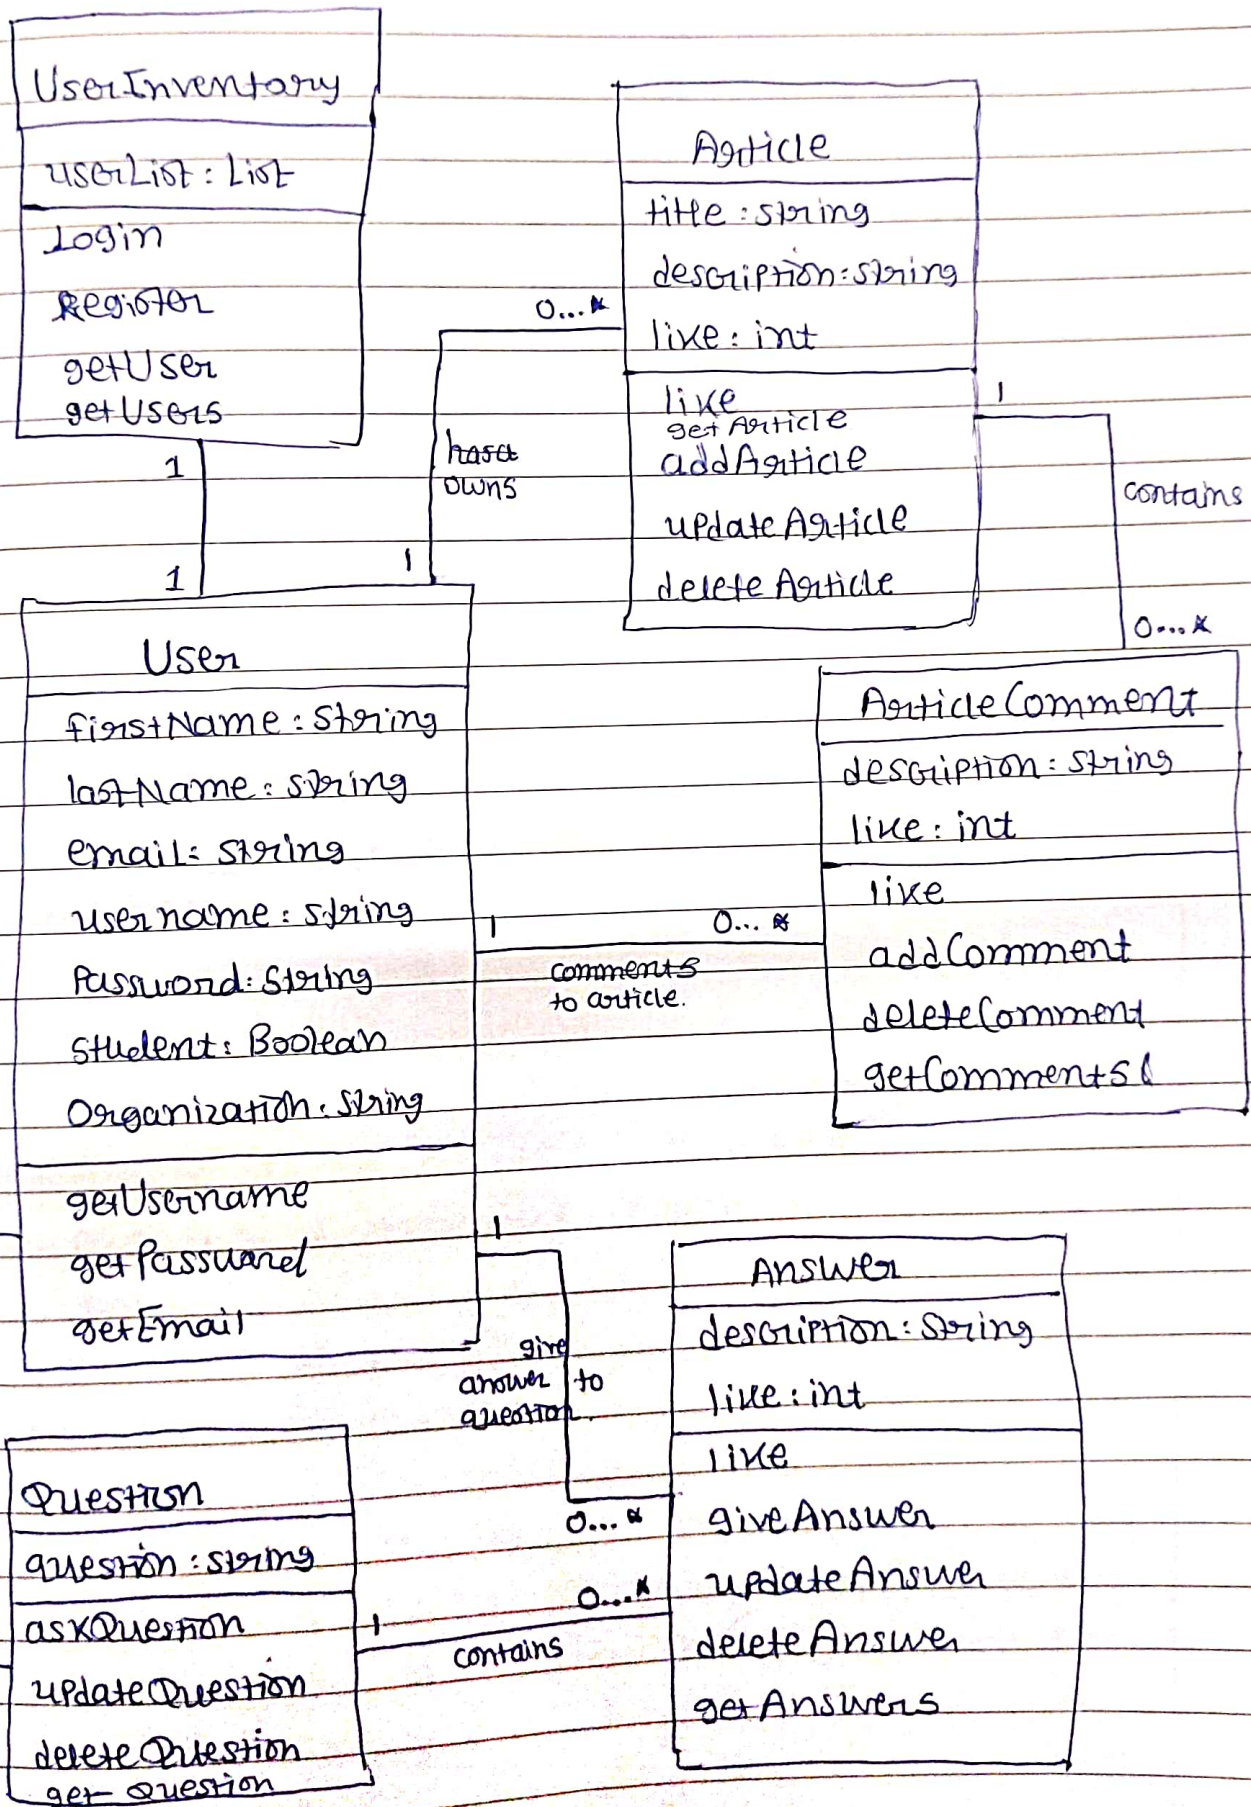 UserInventory
userList : List
Login
Register
getUser
getUsers
1
1
Article
title : string
description : string
like : int
like
get Article
addArticle
updateArticle
deleteArticle
0...*
hasa
owns
1
1
contains
0...*
User
firstName : String
lastName : string
email : string
username : string
Password : String
Student : Boolean
Organization : String
getUsername
getPassword
getEmail
ArticleComment
description : string
like : int
like
addComment
deleteComment
getComments(
1
0... *
comments
to article.
1
give
answer to
question.
0... *
Answer
description : String
like : int
like
giveAnswer
updateAnswer
deleteAnswer
getAnswers
Question
question : string
askQuestion
updateQuestion
deleteQuestion
get Question
1
0...*
contains